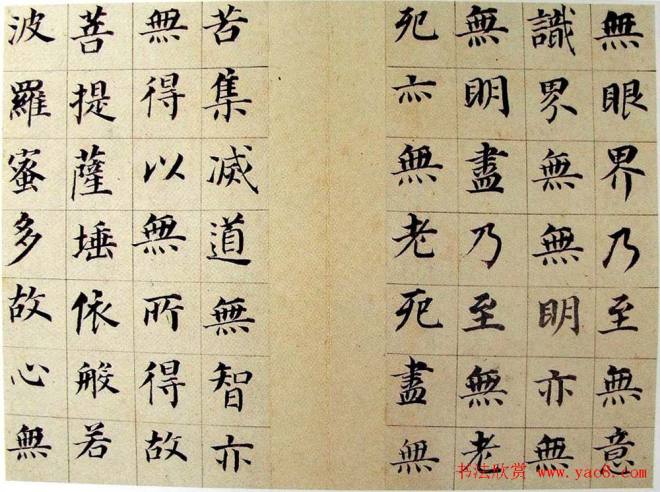 無眼界乃至無意
識界無無明亦無
無明盡乃至無老
死亦無老死盡無
苦集滅道無智亦
無得以無所得故
菩提薩埵依般若
波羅蜜多故心無
书法欣赏 www.yac8.com